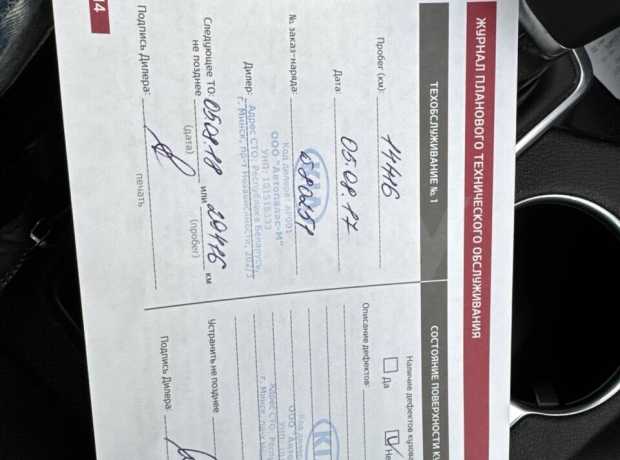 ЖУРНАЛ ПЛАНОВОГО ТЕХНИЧЕСКОГО ОБСЛУЖИВАНИЯ
ТЕХОБСЛУЖИВАНИЕ № 1
Пробег (км): 14416
Дата: 05.08.17
№ заказ-наряда:
KIA
Дилер:
ООО "Автопалас-М"
Адрес СТО: Республика Беларусь,
г. Минск, пр-т Независимости, 202/3
Следующее ТО: 05.08.18 или 29416 км
не позднее (дата) (пробег)
Подпись Дилера: печать
14
СОСТОЯНИЕ ПОВЕРХНОСТИ
Наличие дефектов
Да
Описание дефектов:
KI
Код
ООО
УНП
Адрес СТО:
г. Минск,
Устранить не позднее
Подпись Дилера: